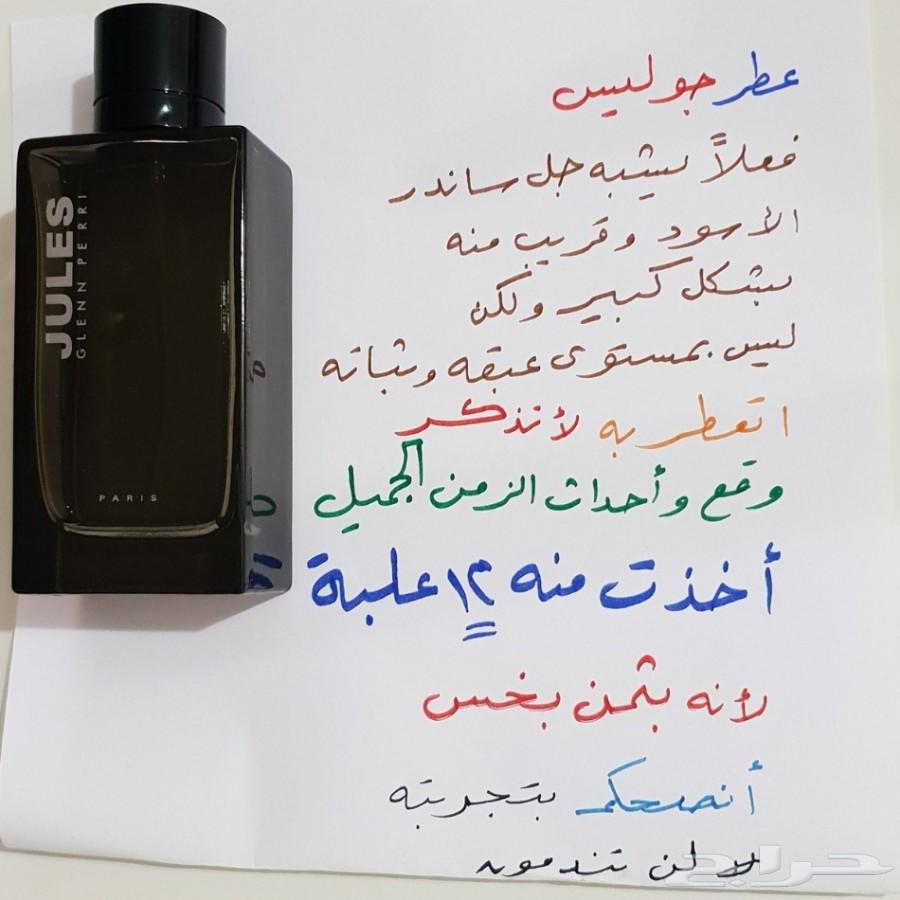 عطر جوليس
فعلاً يشبه جل ساندر
الأسود وقريب منه
بشكل كبير ولكن
ليس بمستوى عبقه وثباته
اتعطر به لأتذكر
وقع وأحداث الزمن الجميل
أخذت منه ١٢ علبة
لأنه بثمن بخس
أنصحكم بتجربته
لا لن تندمون
JULES
GLENN PERRI
PARIS
حراج